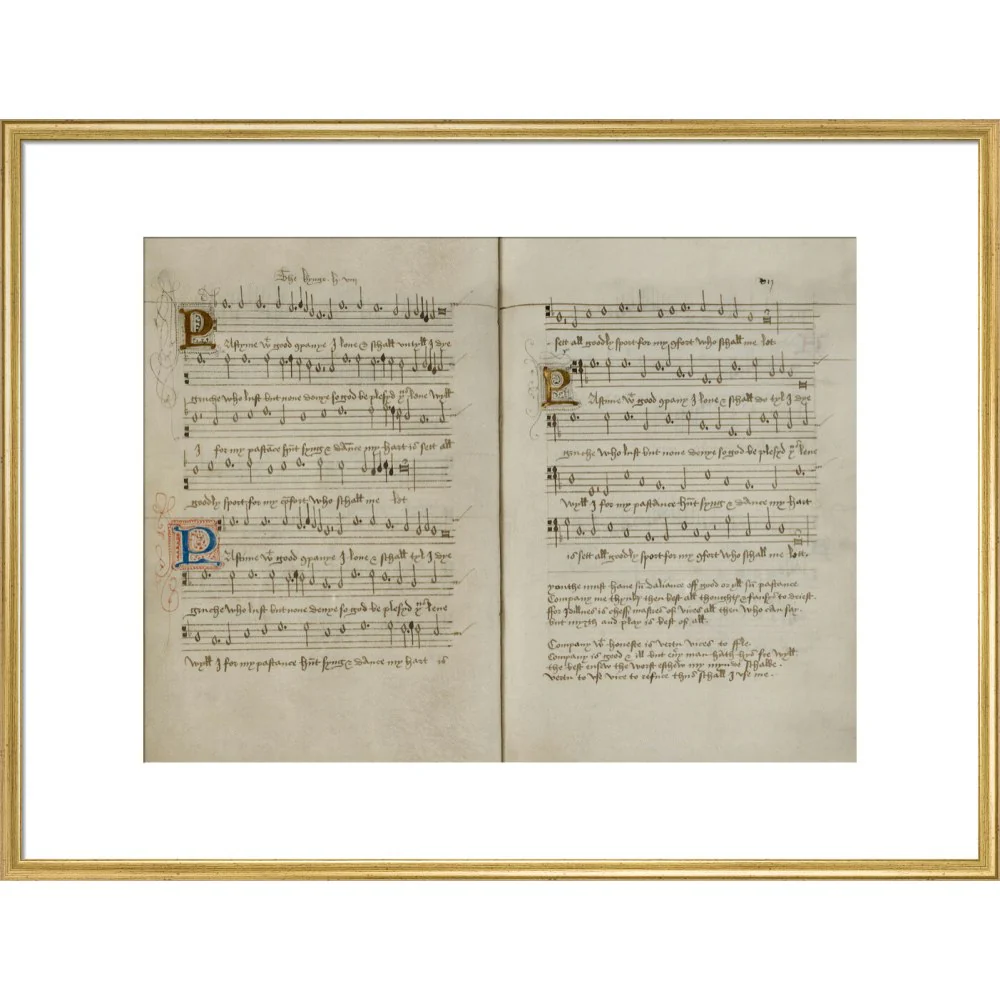 The kynge h viij
PAstyme wt good 9panye I loue & schall vntyll I dye
gruche who lust but none denye so god be plesyd yus loue wyll
I for my pastāce hūt syng & daūce my hart is sett all
goodly sport for my 9fort who schall me lot
PAstyme wt good 9panye I loue & schall tyl I dye
gruche who lust but none denye so god be plesyd yus leue
wyll I for my pastance hūt syng & dāuce my hart is
sett all goodly sport for my 9fort who schall me lot
PAstyme wt good 9pany I loue & schall do tyl I dye
gruche who lust but none denye so god be plesyd yus leue
wyll I for my pastance hūt syng & dāuce my hart
is sett all goodly sport for my 9fort who schall me lott.
youthe must haue sū daliance off good or yll sū pastance
Company me thynks then best all thoughts & fansys to deiest.
ffor Idillnes is cheff mastres of vices all then who can say.
but myrth and play is best of all.
Company wt honeste is vertu vices to ffle.
Company is good & ill but eūy man hath hys fre wyll.
the best ensew the worst eschew my mynde schalbe.
vertu to vse vice to refuce thus schall I vse me.